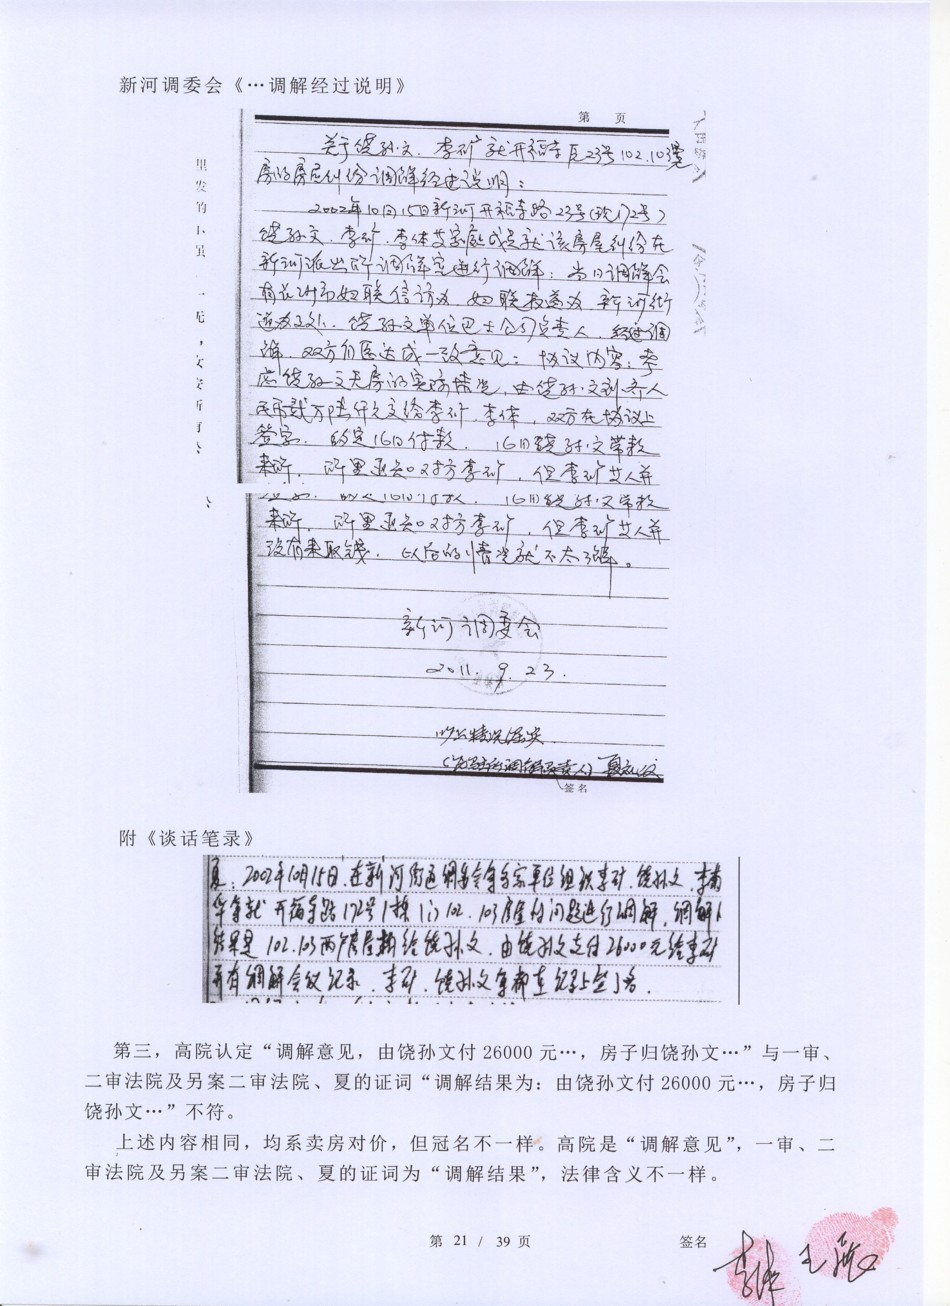 新河调委会《…调解经过说明》
第 页
关于饶孙文、李矿就开福寺区23号102.103号
房的房屋纠纷调解经过说明:
2002年10月15日新河开福寺路23号(现172号)
饶孙文、李矿、李体艾家庭成员就该房屋纠纷在
新河派出所调解室进行调解:当日调解会
有长沙市妇联信访办、妇联权益办、新河街
道办事处、饶孙文单位巴士公司负责人,经过调
解,双方自愿达成一致意见:协议内容:考
虑饶孙文无房的实际情况,由饶孙文补齐人
民币贰万陆仟元交给李矿、李体,双方在协议上
签字,约定16日付款,16日饶孙文带款
来所,所里通知对方李矿,但李矿艾人并
来所,所里通知对方李矿,但李矿艾人并
没有来取钱,以后的情况就不太了解。
新河调委会
2011.9.23.
以上情况属实
签名
附《谈话笔录》
夏:2002年10月15日,在新河街道调委会等多家单位组织李矿、饶孙文、李南
华等就开福寺路172号1栋1门102.103房屋的问题进行调解,调解
结果是102.103两户房屋判给饶孙文,由饶孙文支付26000元给李矿
并有调解会议记录,李矿、饶孙文等都在记录上签了名.
第三,高院认定“调解意见,由饶孙文付 26000 元…,房子归饶孙文…”与一审、
二审法院及另案二审法院、夏的证词“调解结果为:由饶孙文付 26000 元…,房子归
饶孙文…”不符。
上述内容相同,均系卖房对价,但冠名不一样。高院是“调解意见”,一审、二
审法院及另案二审法院、夏的证词为“调解结果”,法律含义不一样。
第 21 / 39 页 签名